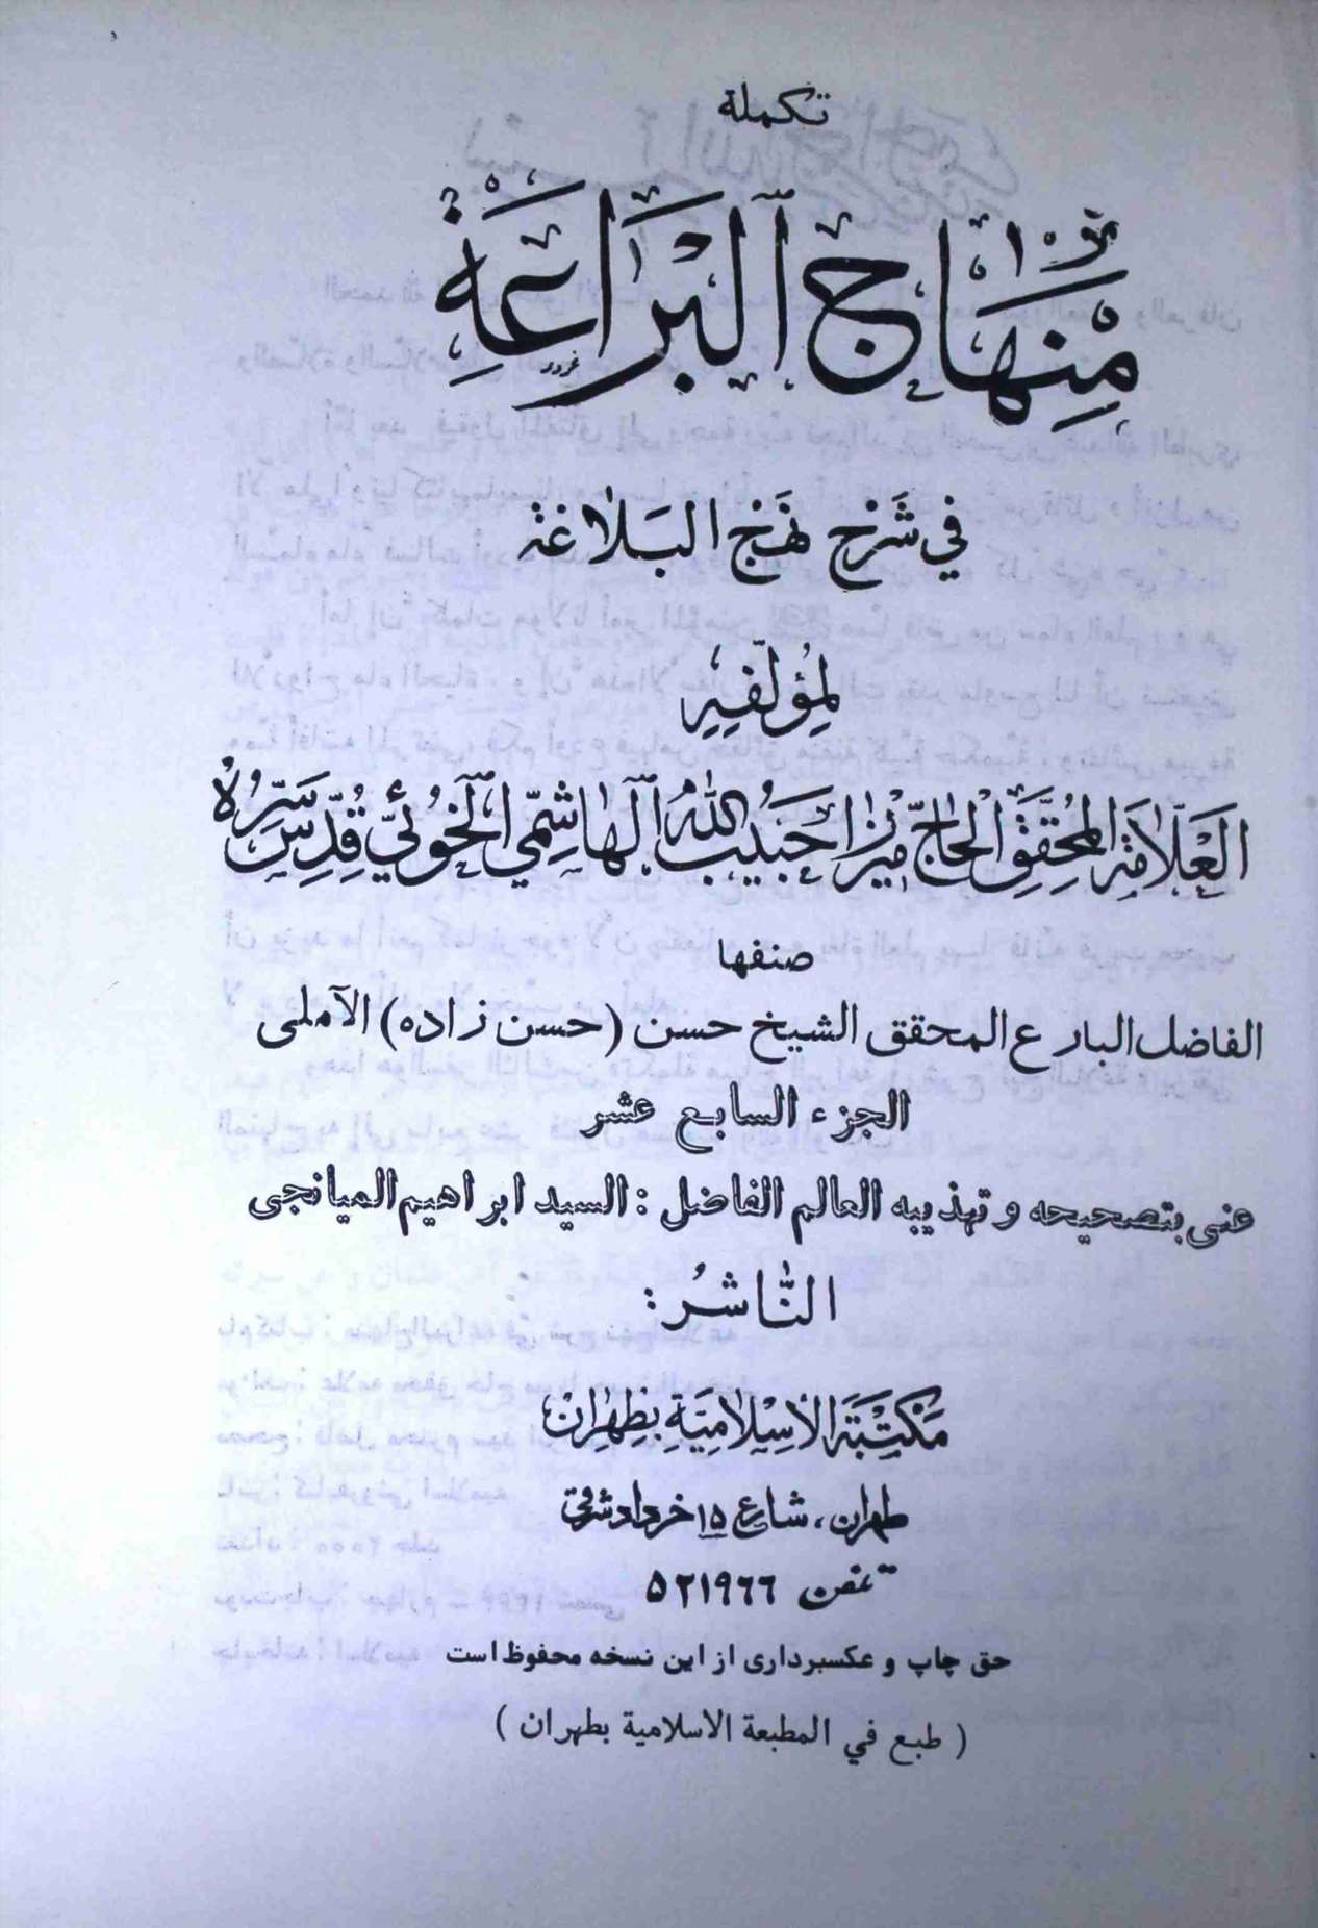 تكملة
مِنْهَاجُ ٱلبَرَاعَةِ
في شَرْحِ نَهْجِ البَلاغَة
لِمُؤَلِّفِهِ
العَلّامَةِ المُحَقِّقِ الْحَاجّ مِيرْزا حَبيبُ اللهِ ٱلهٰاشِمّي ٱلخُوئيّ قُدِّسَ سَرُّهُ
صنفها
الفاضل البارع المحقق الشيخ حسن (حسن زاده) الآملی
الجزء السابع عشر
عنی بتصحيحه و تهذيبه العالم الفاضل : السيد ابراهيم الميانجی
النَّاشرُ :
مَكْتَبَةَ الْاسِلٰامِيَّةِ بِطِهْرانْ
طهران، شارع ۱۵ خرداد شرقی
تلفن ۵۲۱۹۶۶
حق چاپ و عكسبرداری از این نسخه محفوظ است
( طبع في المطبعة الاسلامية بطهران )